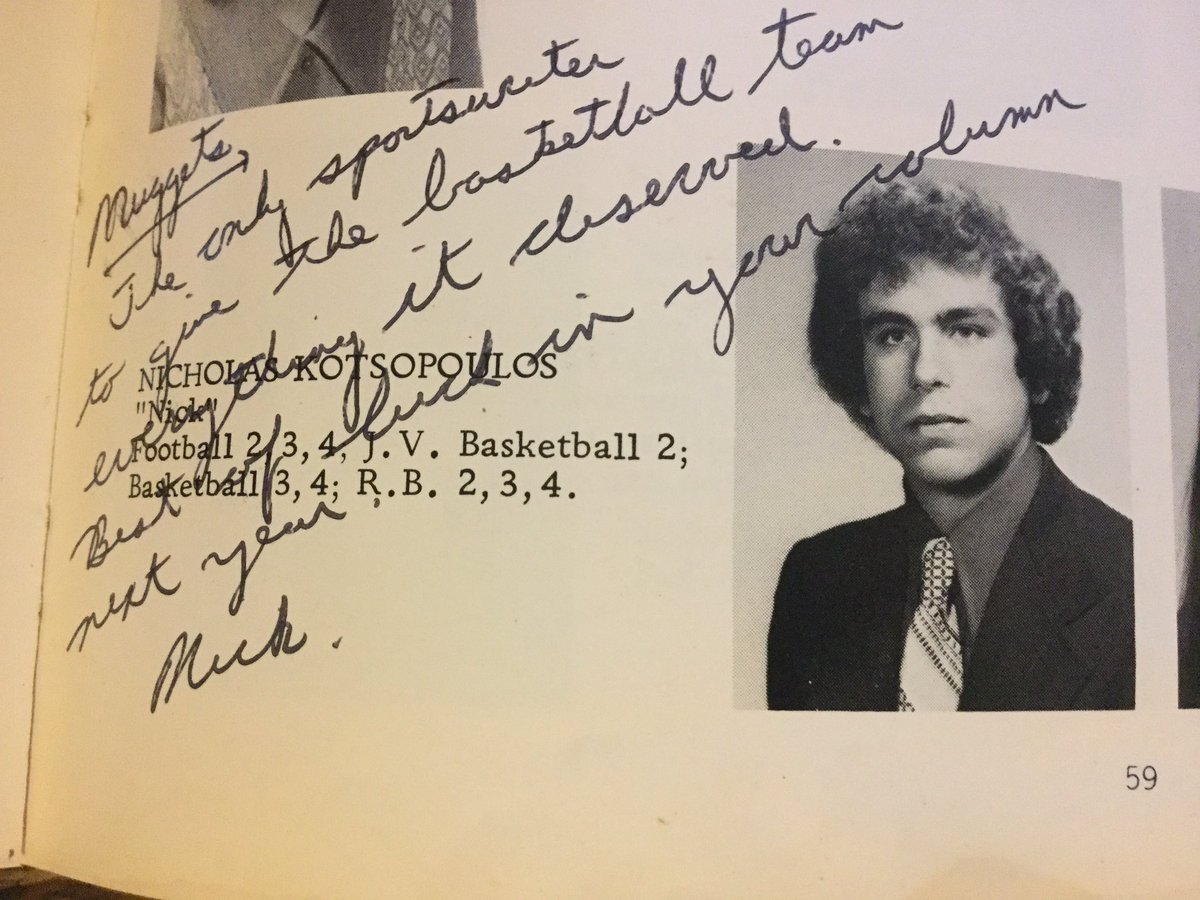 Nuggets,
The only sportswriter
to give the basketball team
everything it deserved.
Best of luck in your column
next year.
Nick.
NICHOLAS KOTSOPOULOS
"Nick"
Football 2,3,4; J.V. Basketball 2;
Basketball 3,4; R.B. 2,3,4.
59